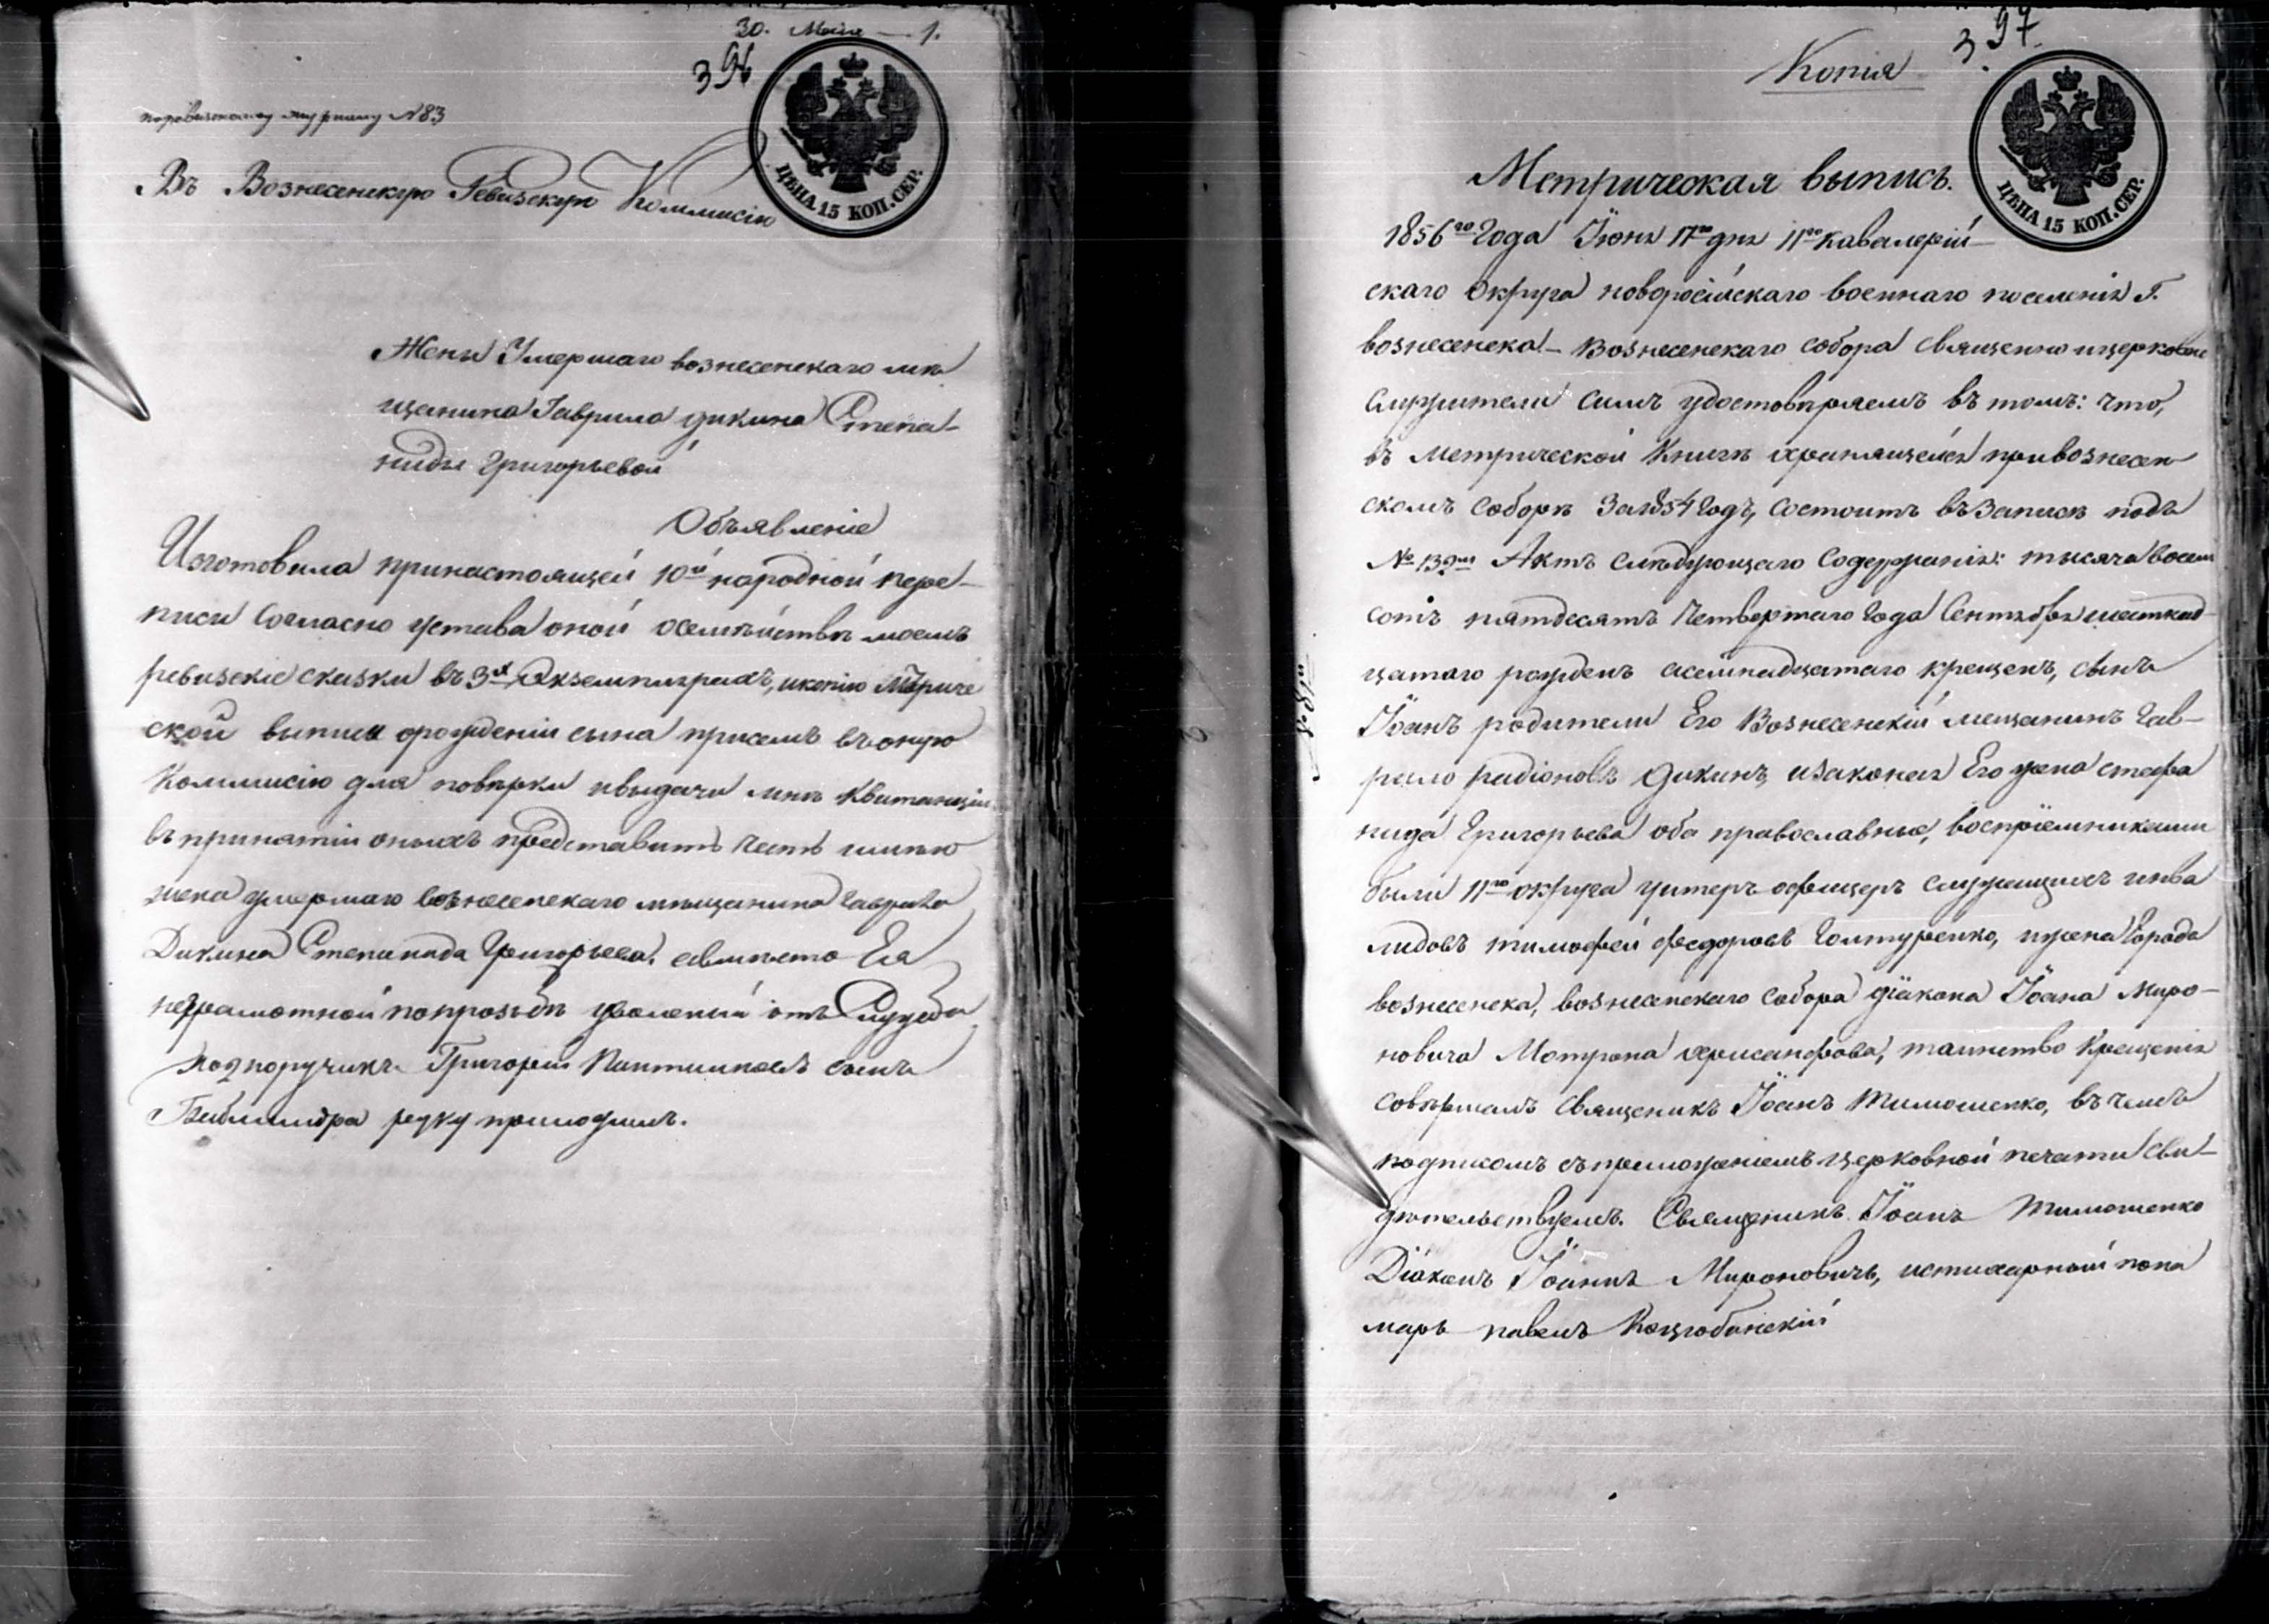 30. Мая — 1.
396
поревизскому журналу №83
Въ Вознесенскую Ревизскую Коммисію
ЦѢНА 15 КОП. СЕР.
Жены Умершаго вознесенскаго мѣ
щанина Гаврила дикина Степа-
ниды Григорьевой
Объявленіе
Изготовила принастоящей 10й народной пере-
писи Согласно устава оной осемѣйствѣ моемъ
ревизскіе сказки въ 3х Экземплярахъ, икопію Мтриче
ской выписи орожденіи сына присемъ въоную
Коммисію для повѣрки ивыдачи мнѣ Квитанціи
въпринятіи оныхъ представить честь имѣю
жена умершаго вознесенскаго мѣщанина Гаврила
Дикина Степанида Григорьева. авмѣсто Ея
неграмотной попрозьбѣ уволеный отъ Службы
подпоручикъ Григорій сынъ
руку приложилъ.
397.
Копія
ЦѢНА 15 КОП. СЕР.
Метрическая выпись.
1856го Года Іюня 17го дня 11го Кавалерій-
скаго Округа новоросійскаго военнаго поселенія Г.
вознесенска — Вознесенскаго собора Священно ицерковно
Служители Симъ удостовѣряемъ въ томъ: что,
въ метрической Книгѣ хранящейся привознесен
скомъ Соборѣ За 1854 Годъ, Состоитъ въ записѣ подъ
№ 132м Актъ Слѣдующаго Содержанія: тысяча восем
сотъ пятдесятъ Четвертаго Года Сентября шестнад-
цатаго рожденъ асемнадцатаго крещенъ, сынъ
Іоанъ родители Его Вознесенскій мещанинъ Гав-
рило радіоновъ дикинъ, изаконая Его жена стефа
нида Григорьева оба православные, воспріемниками
были 11го округа унтеръ офицеръ служащихъ инва
лидовъ тимофей федоровъ Голтуренко, ижена Города
вознесенска, вознесенскаго собора діакона Іоана Миро-
новича Мотрона хрисанфова, таинство Крещенія
совѣршалъ Священикъ Іоанъ Тимошенко, въ чемъ
подписомъ съприложеніемъ церковной печати Сви-
дѣтельствуемъ. Священикъ Іоанъ Тимошенко
Діаконъ Іоаннъ Мироновичъ, истихарный поно
марь павелъ Коцюбинскій